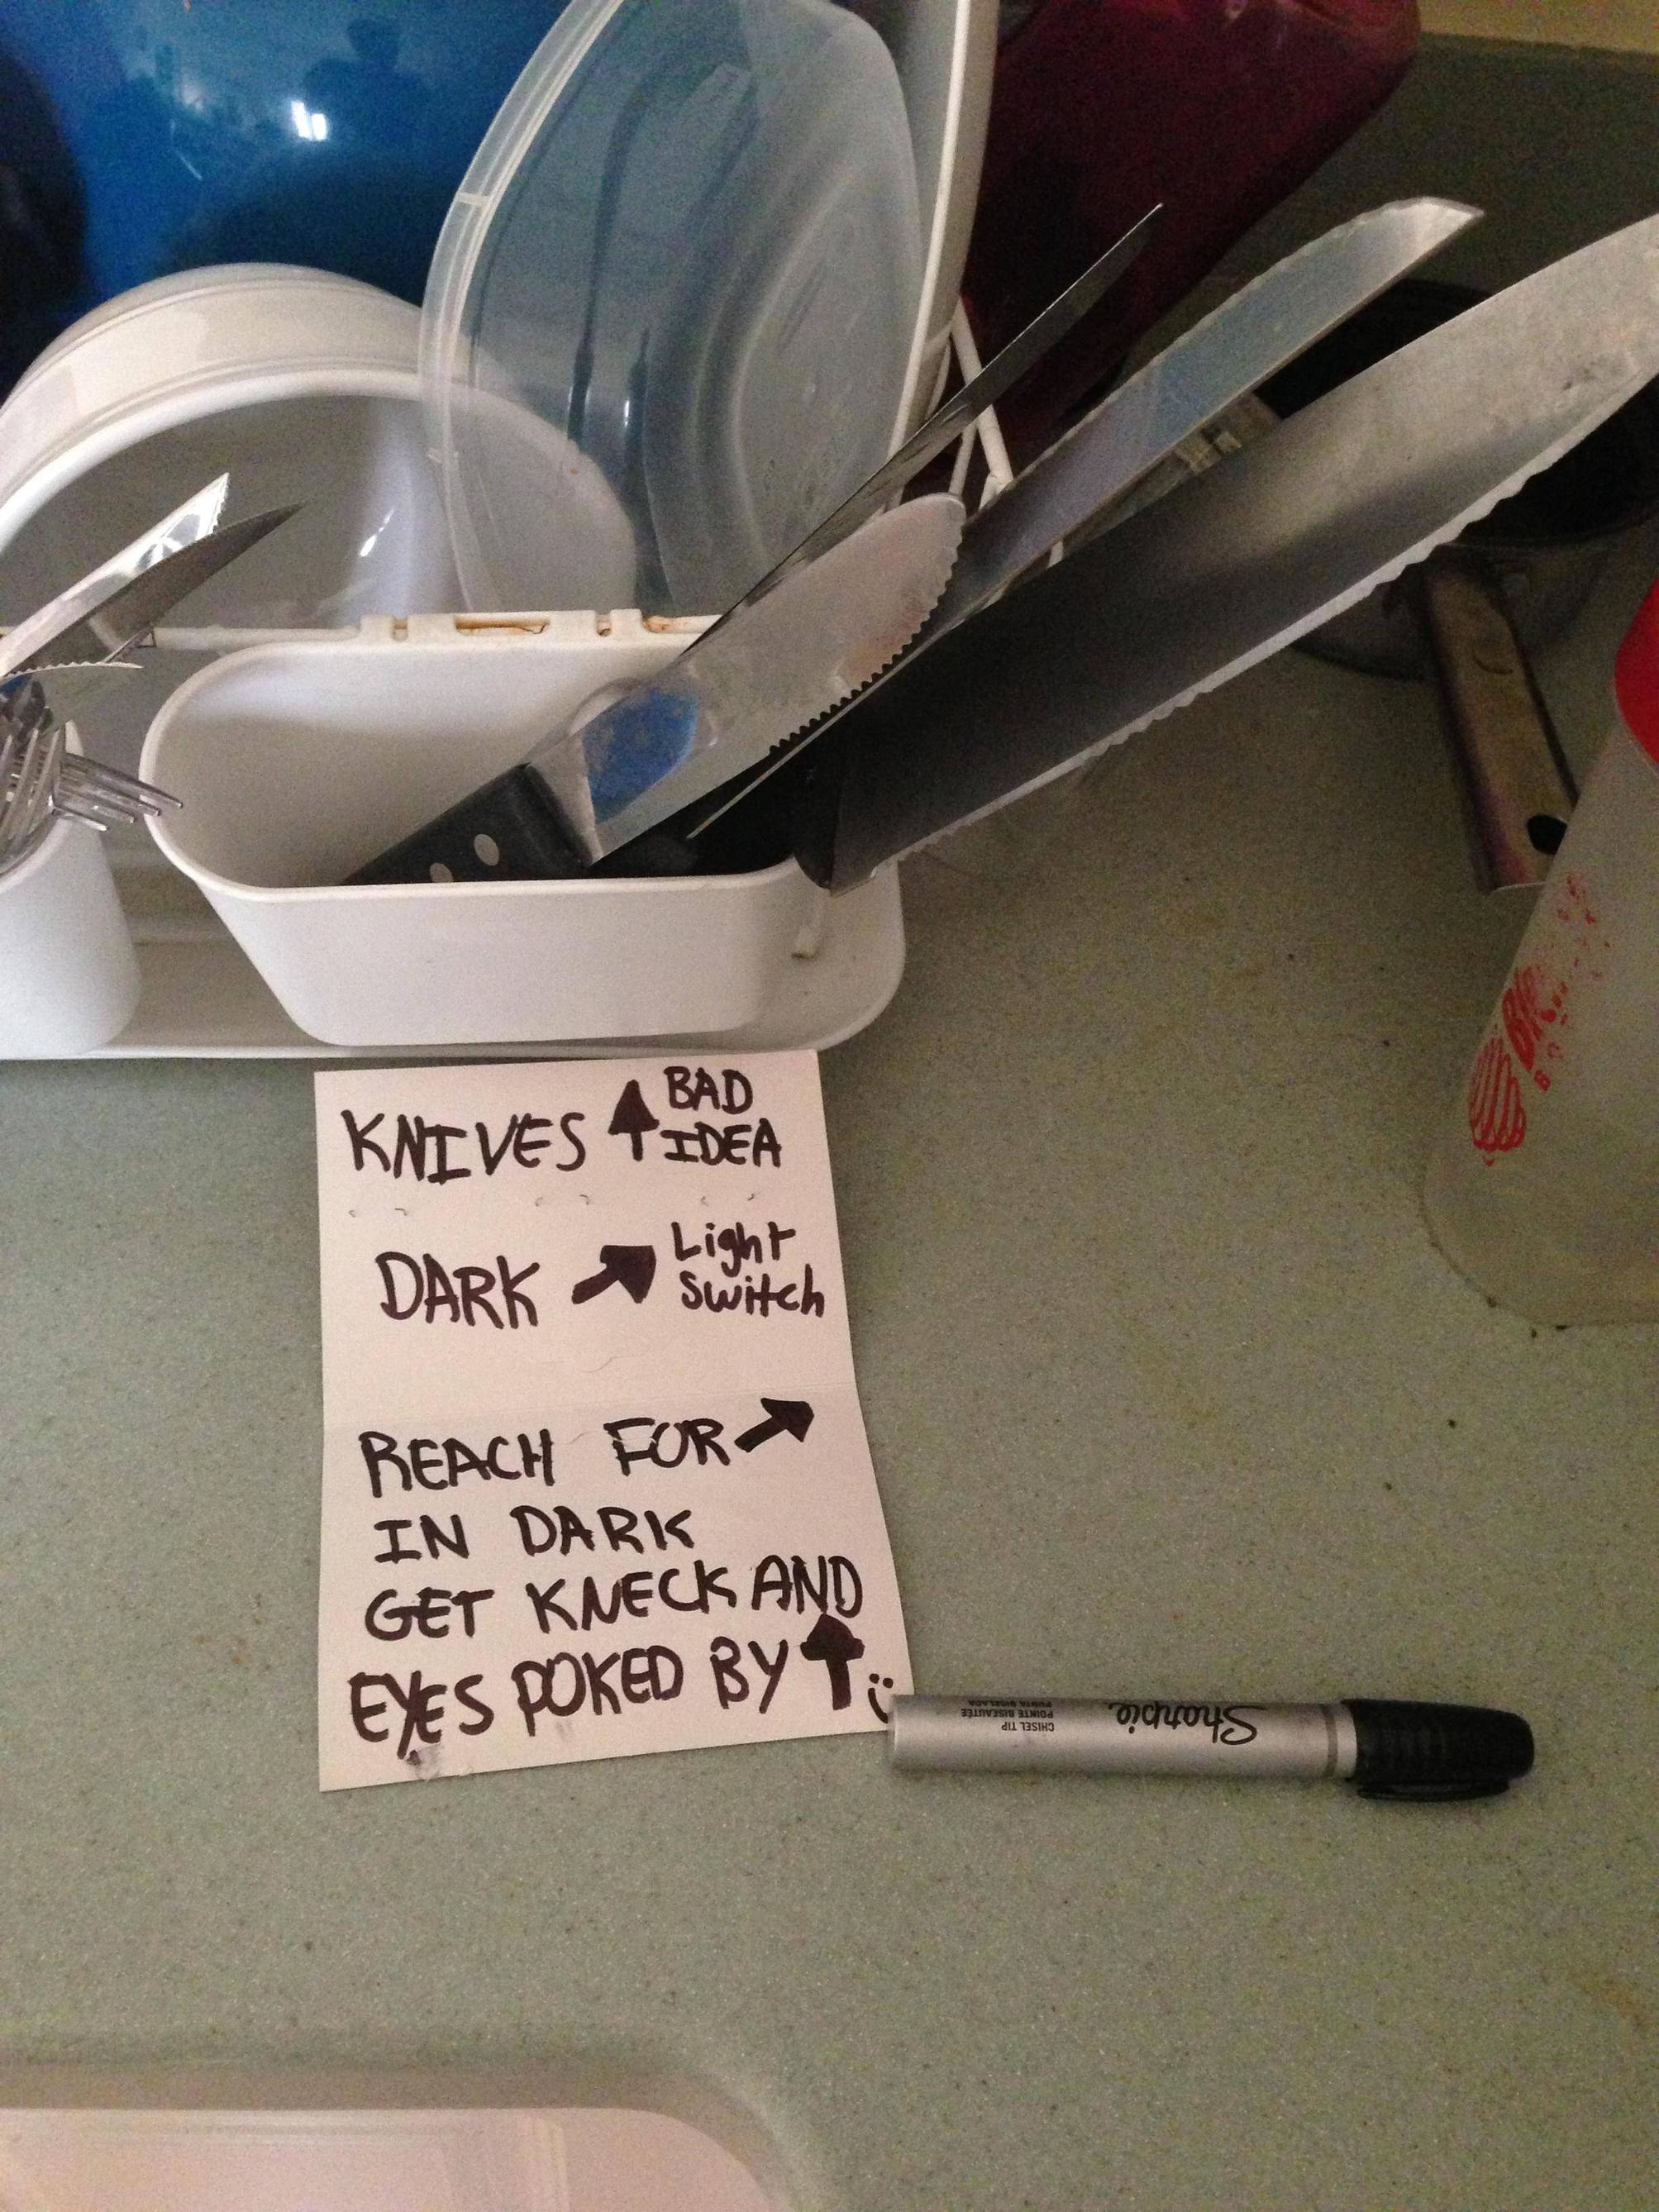 KNIVES ↑ BAD
IDEA
DARK ↗ Light
Switch
REACH FOR ↗
IN DARK
GET KNECK AND
EYES POKED BY ↑ :)
Sharpie
CHISEL TIP
POINTE BISEAUTÉE
PUNTA BISELADA